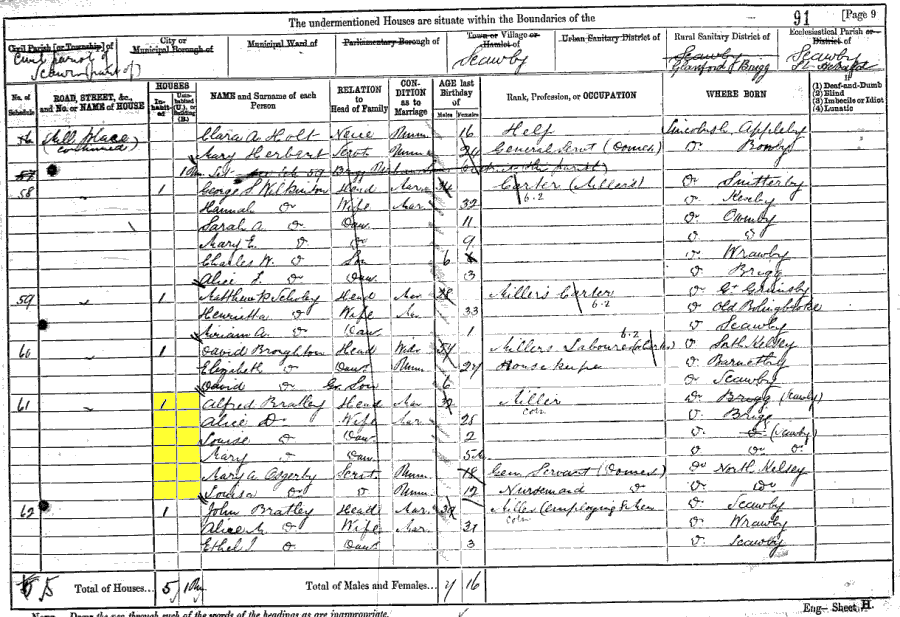 The undermentioned Houses are situate within the Boundaries of the
91 [Page 9
Civil Parish [or Township] of
City or Municipal Borough of
Municipal Ward of
Parliamentary Borough of
Town or Village or Hamlet of
Urban Sanitary District of
Rural Sanitary District of
Ecclesiastical Parish or District of
Civil parish of
Scawby
Scawby
Scawby
Glanford Brigg
No. of Schedule
ROAD, STREET, &c., and No. or NAME of HOUSE
HOUSES
In-habited
Unin-habited (U.), or Building (B.)
NAME and Surname of each Person
RELATION to Head of Family
CON-DITION as to Marriage
AGE last Birthday of
Males
Females
Rank, Profession, or OCCUPATION
WHERE BORN
If
(1) Deaf-and-Dumb
(2) Blind
(3) Imbecile or Idiot
(4) Lunatic
Mill Place Clara A. Holt Neice Unm 16 Help Lincolnsh. Appleby
continued) Mary Herbert Servt Unm General Servt (Domes) Do Bonby
57
58 1 George S Wilkinson Head Mar Carter (Miller's) Do Snitterby
Hannah Do Wife Mar 32 6-2 Do
Sarah A. Do Daur 11 Do Ownby
Mary E. Do Do 9 Do Do
Charles W. Do Son 6 Do Wrawby
Alice Do Daur 3 Do Brigg
59 1 Matthew Head Mar 38 Miller's Carter Do Gt Grimsby
Henrietta Do Wife Mar 33 6-2 Do Old Bolingbroke
Miriam A. Do Daur 1 Do Scawby
60 1 David Broughton Head Widr 54 Millers Labourer 6-2 Do South Kelsey
Elizabeth Do Daur Unm 27 Housekeeper Do Barnetby
David Do Gr. Son 6 Do Scawby
61 1 Alfred Bratley Head Mar 32 Miller Do Brigg
corn
Alice Do Wife Mar 28 Do Brigg
Louise Do Daur 2 Do Do
Mary Do Daur 5m Do Do Do
Mary A. Servt Unm 18 Gen Servant (Domes) Do North Kelsey
Louisa Do Do Unm 12 Nursemaid Do Do Do
62 1 John Bratley Head Mar 39 Miller (employing Do Scawby
corn
Alice A. Do Wife Mar 31 Do Wrawby
Ethel Do Daur 3 Do Scawby
5 Total of Houses... 5 Total of Males and Females... 7 16
Eng—Sheet H.
Note.—Draw the pen through such of the words of the headings as are inappropriate.